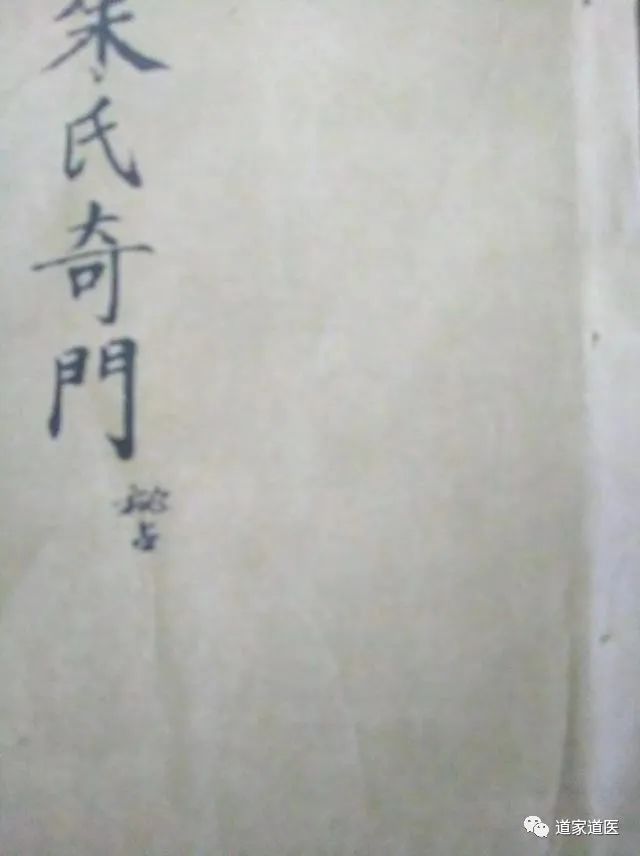 朱氏奇門
秘占
道家道医